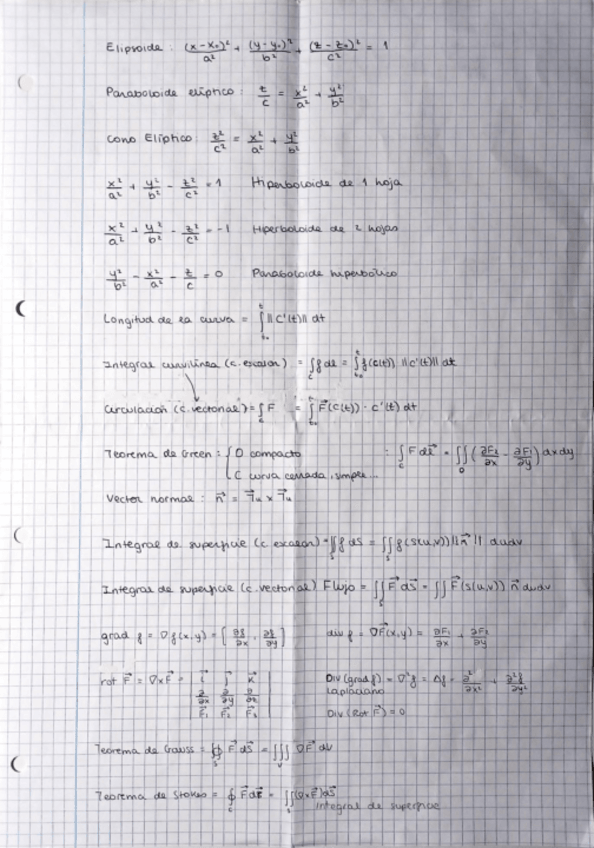 Elipsoide : (x-x₀)²/a² + (y-y₀)²/b² + (z-z₀)²/c² = 1
Paraboloide elíptico : z/c = x²/a² + y²/b²
Cono Elíptico : z²/c² = x²/a² + y²/b²
x²/a² + y²/b² - z²/c² = 1 Hiperboloide de 1 hoja
x²/a² + y²/b² - z²/c² = -1 Hiperboloide de 2 hojas
y²/b² - x²/a² - z/c = 0 Paraboloide hiperbólico
Longitud de la curva = ∫ₜ₀ᵗ ||c'(t)|| dt
Integral curvilínea (c. escalar) = ∫_c f dl = ∫ₜ₀ᵗ f(c(t)) ||c'(t)|| dt
Circulación (c. vectorial) = ∫_c F = ∫ₜ₀ᵗ F⃗(c(t)) · c'(t) dt
Teorema de Green : { D compacto : ∫_c F dl⃗ = ∫∫_D (∂F₂/∂x - ∂F₁/∂y) dxdy
C curva cerrada, simple...
Vector normal : n⃗ = T⃗u x T⃗u
Integral de superficie (c. escalar) = ∫∫_S f dS = ∫∫_S f(s(u,v)) ||n⃗|| dudv
Integral de superficie (c. vectorial) Flujo = ∫∫_S F⃗ dS⃗ = ∫∫ F⃗(s(u,v)) n⃗ dudv
grad f = ∇f(x,y) = [∂f/∂x, ∂f/∂y] div f = ∇F⃗(x,y) = ∂F₁/∂x + ∂F₂/∂y
rot F⃗ = ∇xF⃗ = | i j k | Div (grad f) = ∇²f = Δf = ∂²/∂x² + ∂²f/∂y²
| ∂/∂x ∂/∂y ∂/∂z | Laplaciano
| F₁ F₂ F₃ | Div (Rot F⃗) = 0
Teorema de Gauss = ∯_S F⃗ dS⃗ = ∫∫∫_V ∇F⃗ dV
Teorema de Stokes = ∮_c F⃗ dl⃗ = ∫∫(∇xF⃗) dS⃗
Integral de superficie